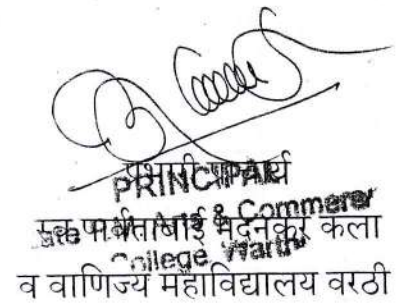 प्रभारी प्राचार्य
PRINCIPAL
स्व. पार्वताबाई मदनकर कला
Arts & Commerce
College Warthi
व वाणिज्य महाविद्यालय वरठी